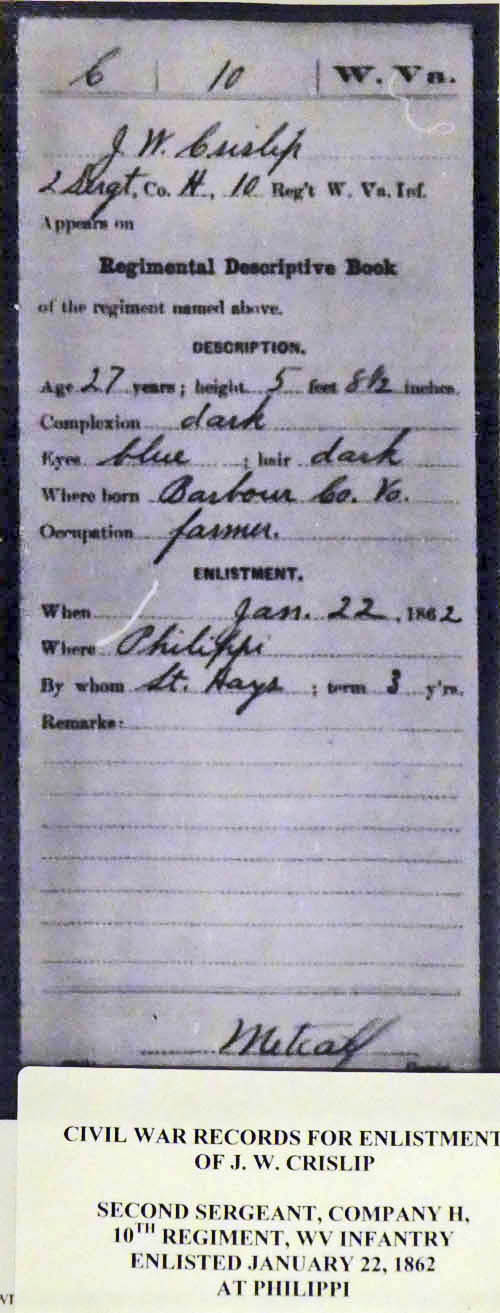 C | 10 | W. Va.
J. W. Crislip
2 Sergt, Co. H, 10 Reg't W. Va. Inf.
Appears on
Regimental Descriptive Book
of the regiment named above.
DESCRIPTION.
Age 27 years; height 5 feet 8 1/2 inches.
Complexion dark
Eyes blue ; hair dark
Where born Barbour Co. Va.
Occupation farmer.
ENLISTMENT.
When Jan. 22, 1862
Where Philippi
By whom Lt. Hays ; term 3 y'rs.
Remarks:
Metcalf
CIVIL WAR RECORDS FOR ENLISTMENT
OF J. W. CRISLIP
SECOND SERGEANT, COMPANY H,
10TH REGIMENT, WV INFANTRY
ENLISTED JANUARY 22, 1862
AT PHILIPPI